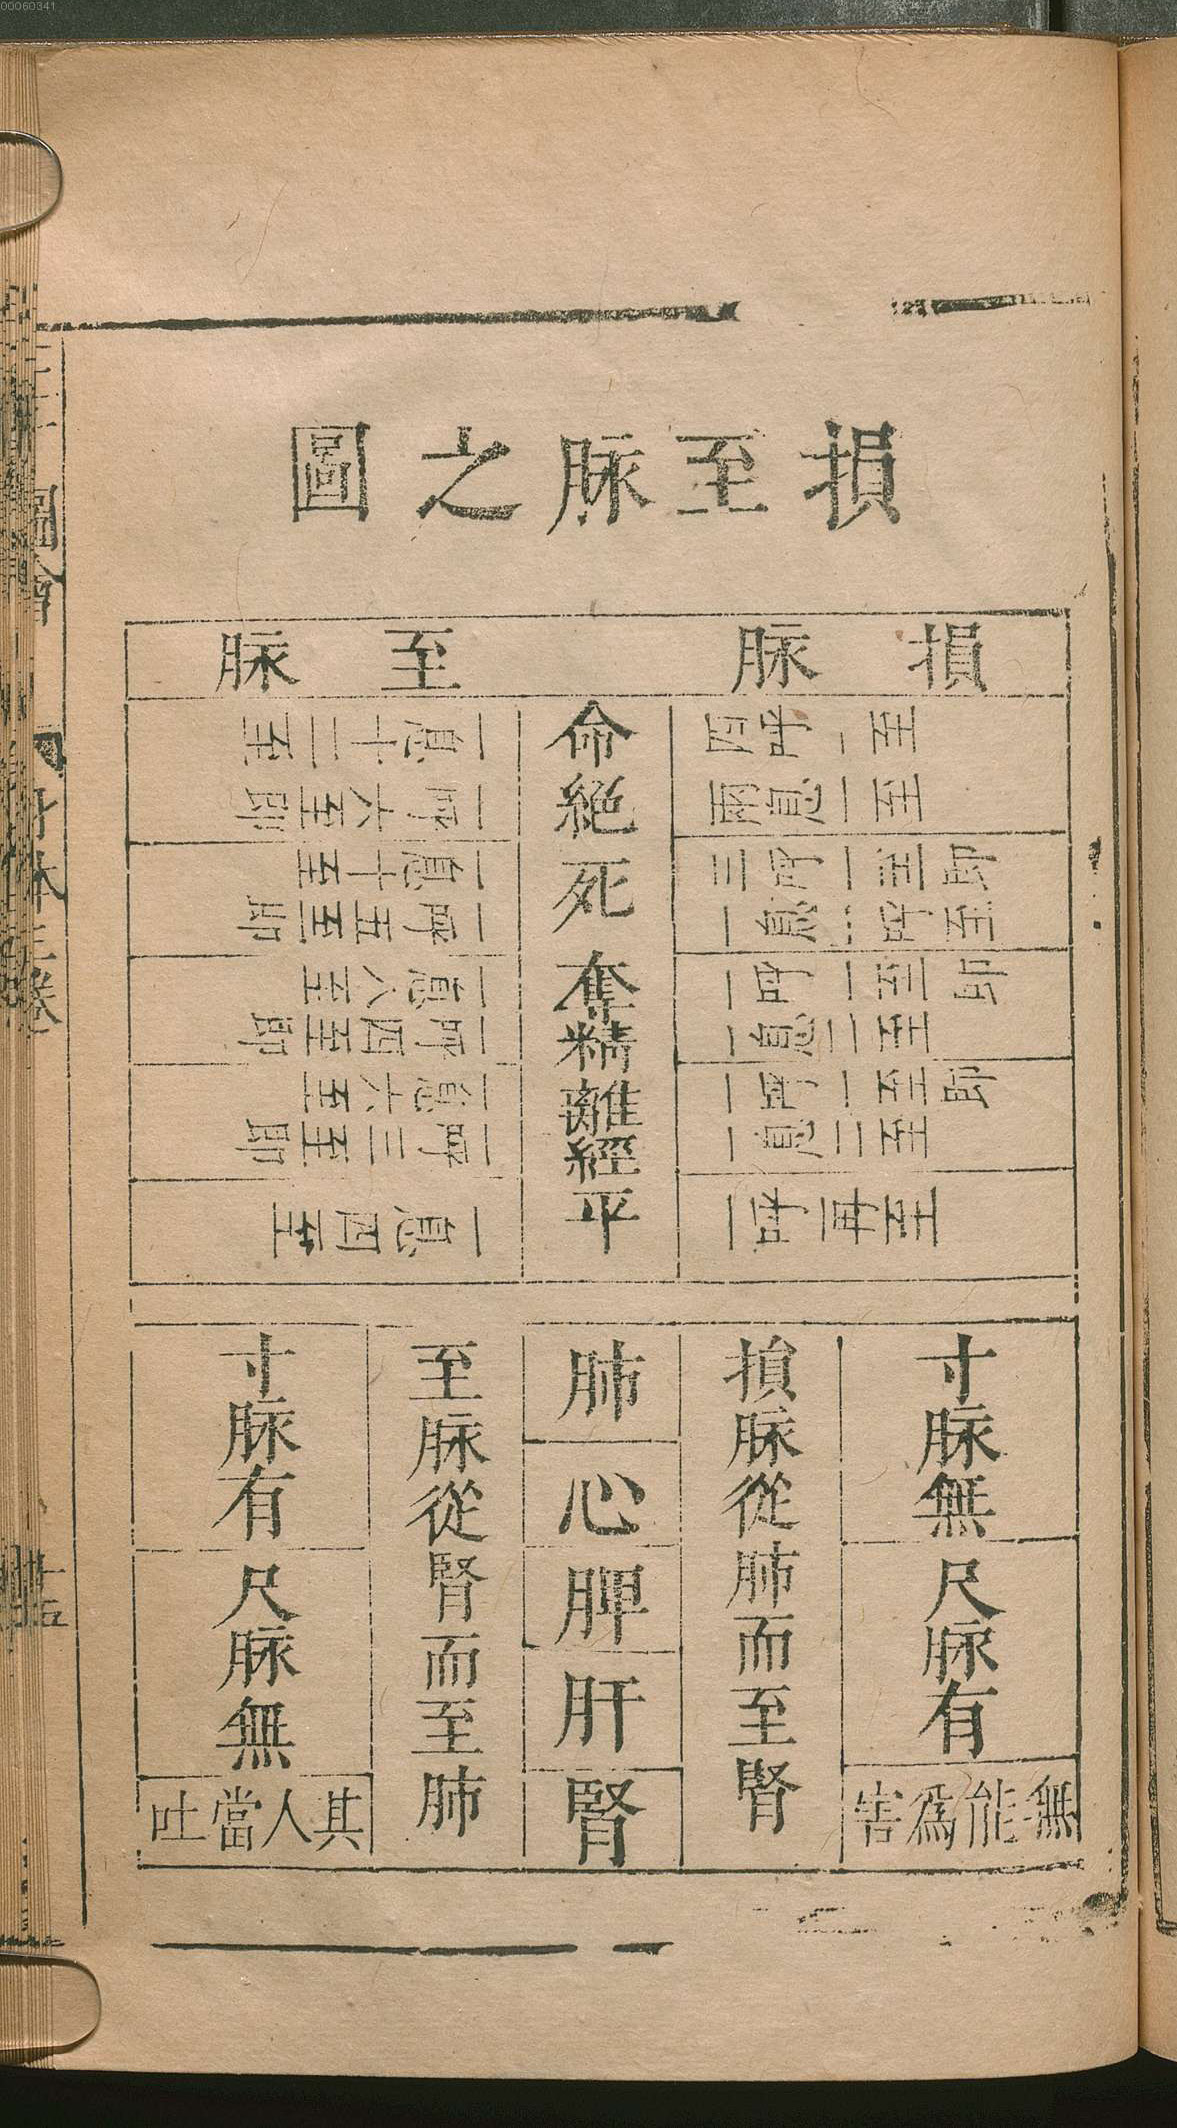 00060341
損至脉之圖
損脉
至脉
四呼一至
兩息一至
三呼一至即
一息
二呼一至即
一息一至
一呼一至即
一息二至
一呼再至
命絶
死
奪精
離經
平
一息十二至
一呼六至即
一息十至
一呼五至即
一息八至
一呼四至即
一息六至
一呼三至即
一息四至
寸脉無
尺脉有
無能為害
損脉從肺而至腎
肺
心
脾
肝
腎
至脉從腎而至肺
寸脉有
尺脉無
其人當吐
圖會
身體
卷